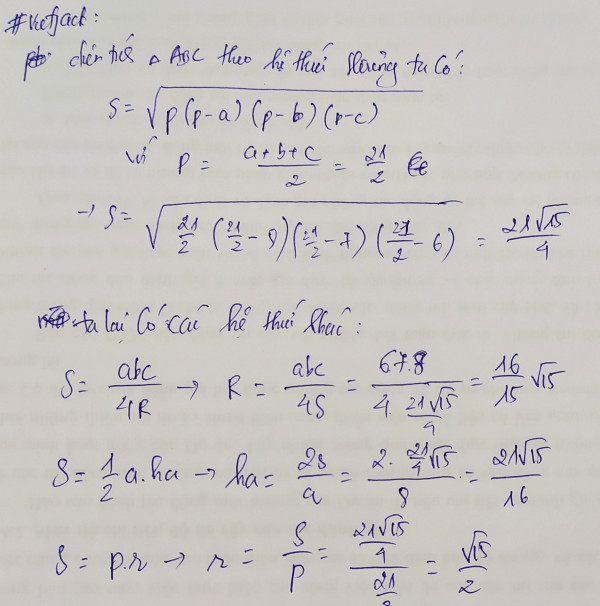 #Vietjack:
diện tích △ ABC theo hệ thức Hêrông ta có:
S = √(p(p-a)(p-b)(p-c))
với P = (a+b+c)/2 = 21/2
→ S = √(21/2 (21/2 - 8)(21/2 - 7)(21/2 - 6)) = 21√15/4
ta lại có các hệ thức khác:
S = abc/4R → R = abc/4S = 6.7.8/(4. 21√15/4) = 16/15 √15
S = 1/2 a.ha → ha = 2S/a = (2. 21/4 √15)/8 = 21√15/16
S = p.r → r = S/P = (21√15/4)/(21/2) = √15/2